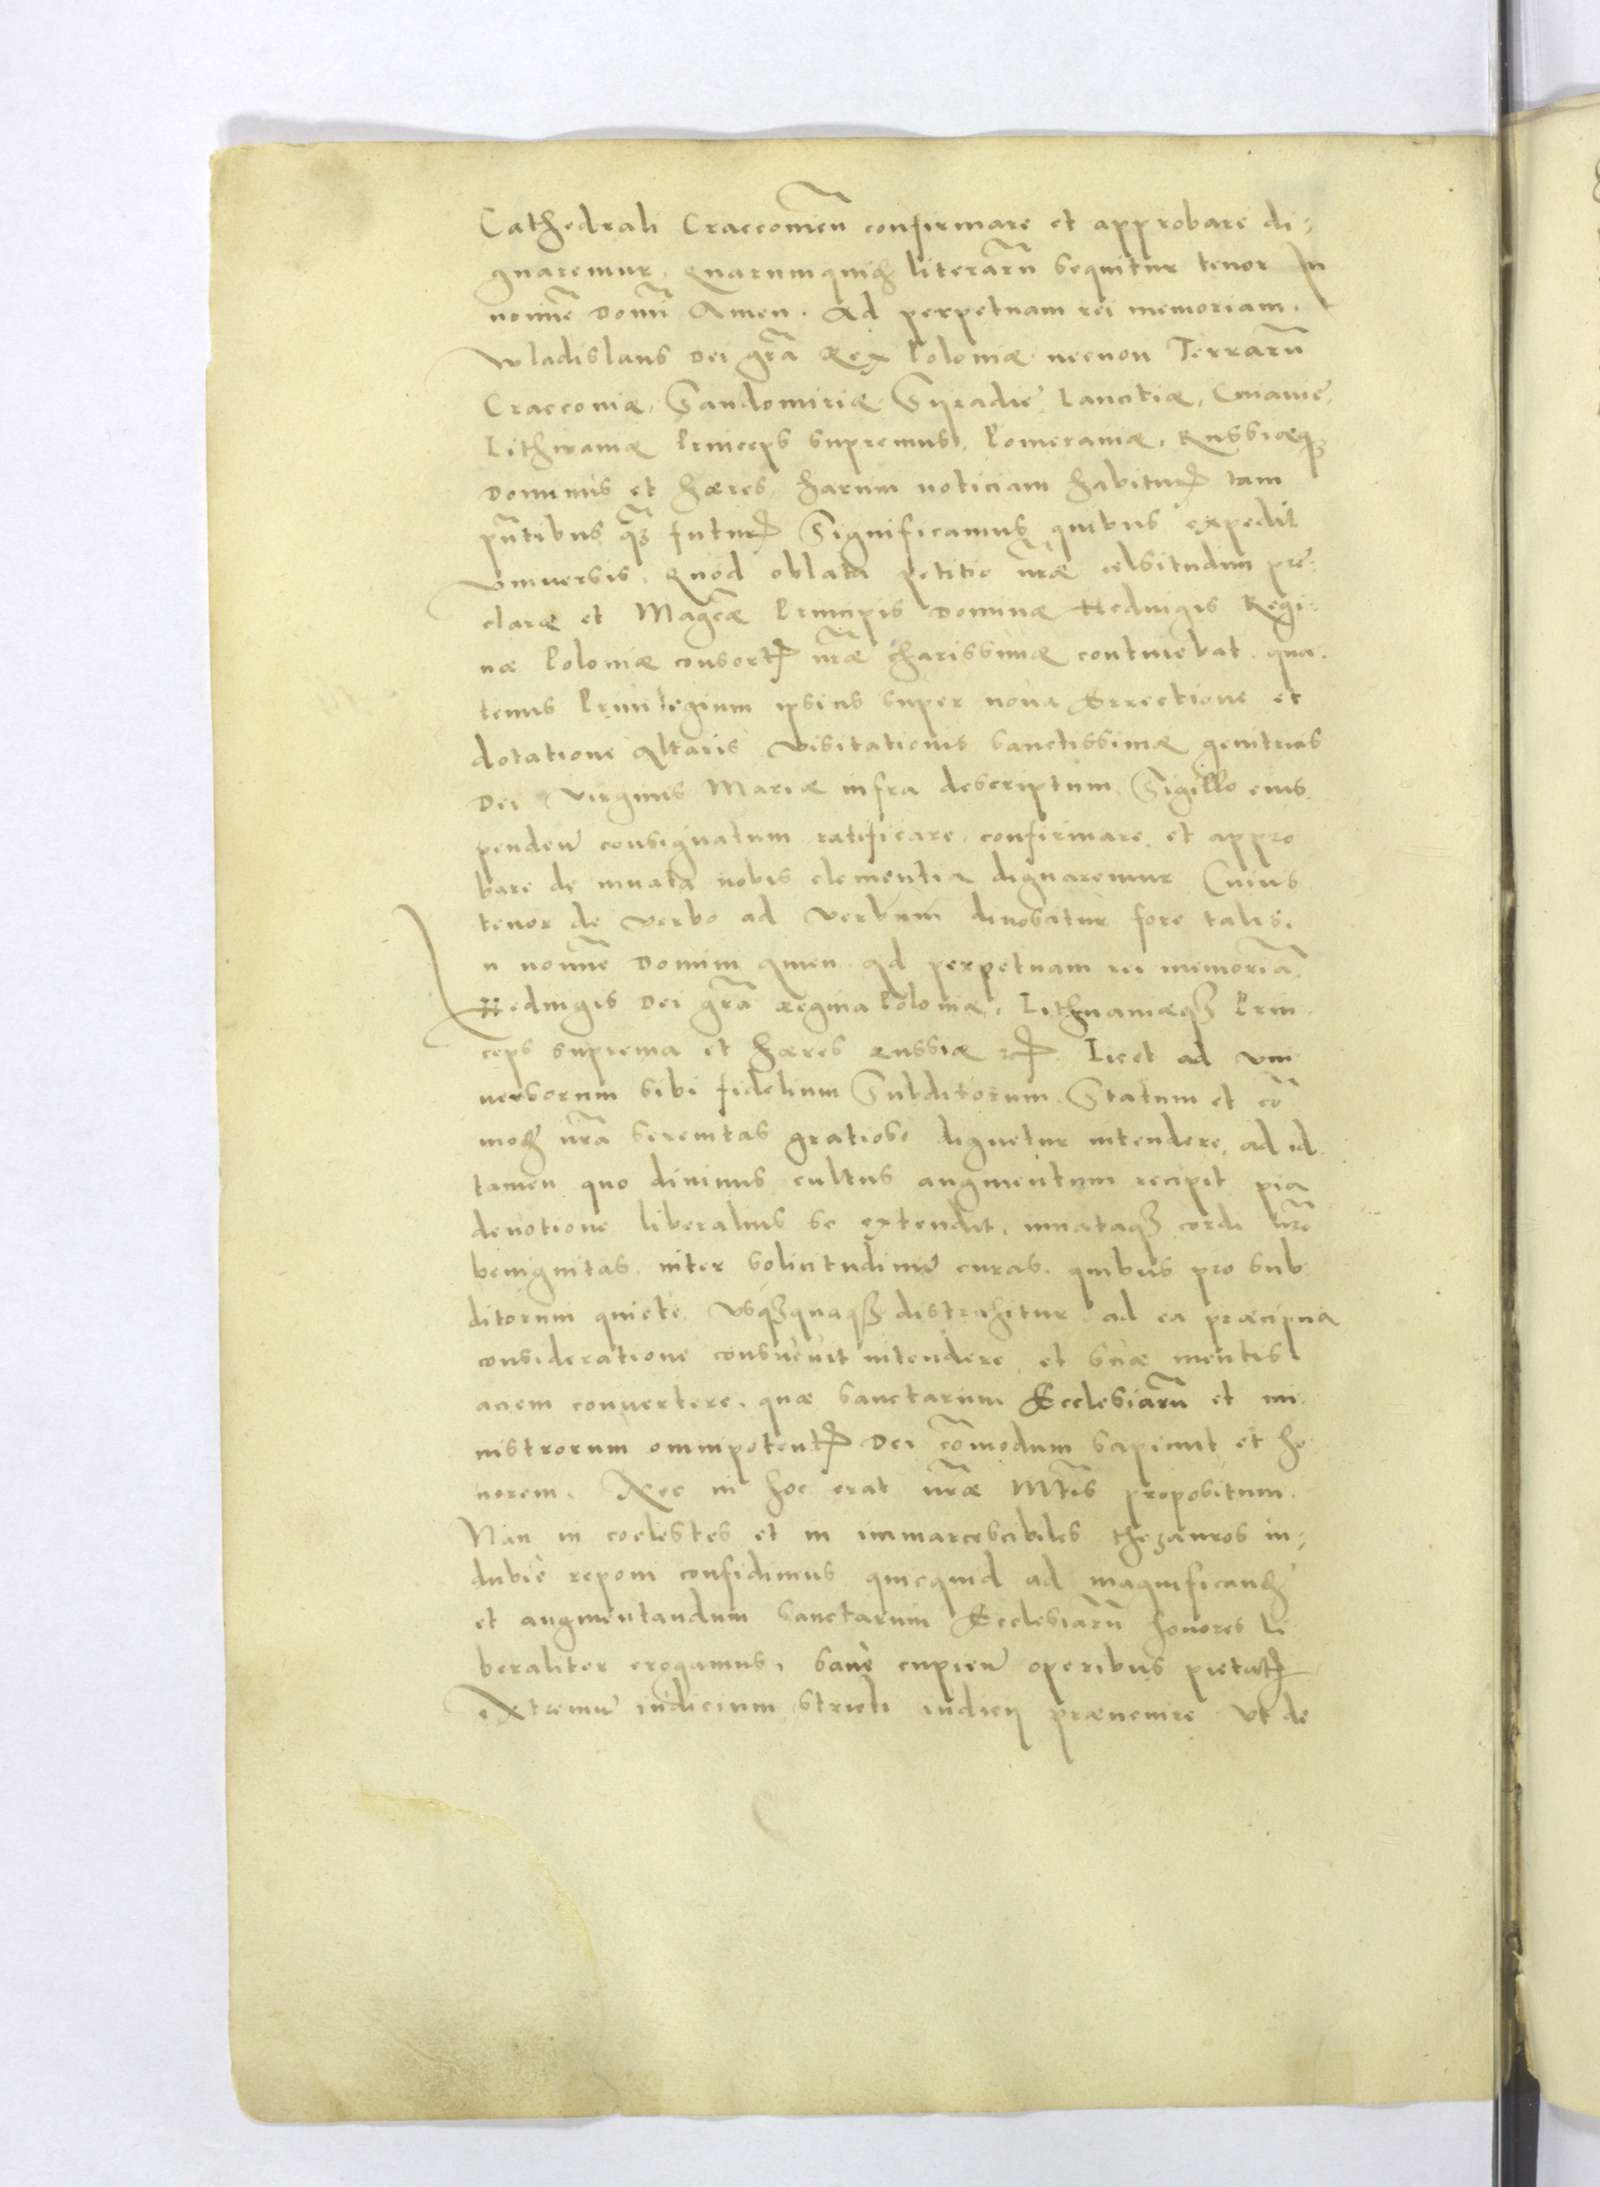 Cathedrali Craccouieñ confirmare et approbare di-
gnaremur. Quarumquidꝫ literarũ sequitur tenor In
nomĩe Domĩ Amen. Ad perpetuam rei memoriam.
Wladislaus Dei gr̃a Rex Poloniæ necnon Terrarũ
Cracconiæ, Sandomiriæ Syradiẽ Lancitiæ, Cuiauiẽ,
Lithwaniæ Princeps supremus, Pomeraniæ, Russiæqꝫ
Dominus et hæres, harum noticiam habiturꝭ tam
pñtibus qꝫ̃ futurꝭ Significamus quibus expedit
Vniuersis. Quod oblata petitio nr̃æ celsitudini prę-
claræ et Magc̃æ Principis Dominæ Hedwigis Regi-
næ Poloniæ consortꝭ nr̃æ charissimæ continebat. qua-
tenus Priuilegium ipsius super noua Errectione et
dotatione Altaris Visitationis sanctissimæ genitricis
Dei Virginis Mariæ infra descriptum Sigillo eius
pendeñ consignatum ratificare, confirmare, et appro
bare de innata nobis clementia dignaremur Cuius
tenor de verbo ad verbum dinoscitur fore talis.
In nomĩe Domini Amen Ad perpetuam rei memoriã.
Hedwigis Dei gr̃a Regina Poloniæ, Lithuaniæqꝫ Prin
ceps suprema et hæres Russiæ ꝛcꝭ. Licet ad vni
uersorum sibi fidelium Subditorum Statum et cõ
modꝫ nr̃a serenitas gratiose dignetur intendere, ad id
tamen quo diuinus cultus augmentum recipit pia
deuotione liberalius se extendit, innataqꝫ cordi nr̃o
benignitas inter solicitudinũ curas, quibus pro sub
ditorum quiete vsqꝫquaqꝫ distrahitur ad ea præcipua
consideratione consueuit intendere et suæ mentis
aciem conuertere, quæ sanctarum Ecclesiarũ et mi
nistrorum omnipotentꝭ Dei cõmodum sapiunt et ho
norem. Nec in hoc erat nr̃æ Mt̃is propositum.
Nan in coelestes et in immarcescibiles thezauros in-
dubiè reponi confidimus quicquid ad magnificandꝫ
et augmentandum sanctarum Ecclesiarũ honores li
beraliter erogamus, sanè cupieñ operibus pietatꝭ
extremũ iudicium stricti iudicij præuenire Vt de